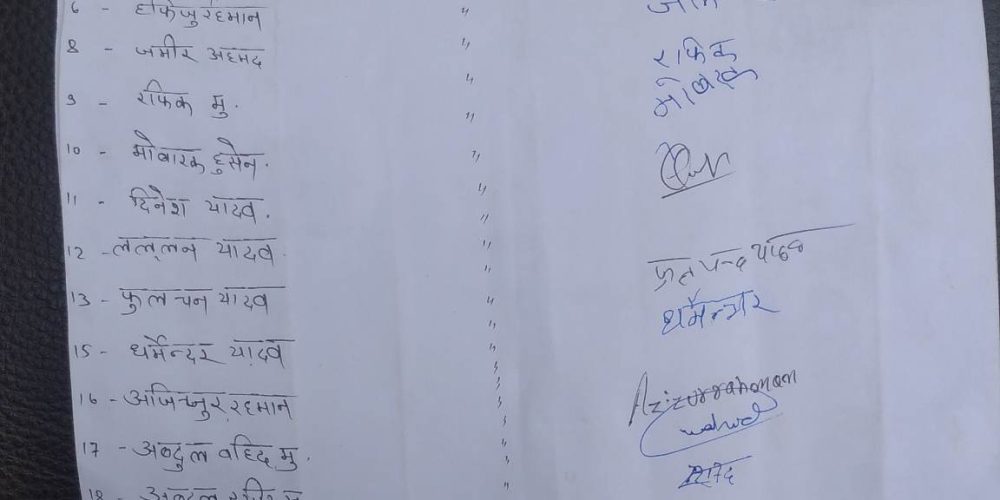 6 - हफिजुर रहमान "
8 - जमीर अहमद "
रफिक
9 - रफिक मु. "
मोबारक
10 - मोवारक हुसेन. "
11 - दिनेश यादव. "
12 - लल्लन यादव. "
13 - फुलचन यादव "
धर्मेन्दर
15 - धर्मेन्दर यादव "
16 - अजिज्नुर रहमान "
Azizurrahaman
17 - अब्दुल वहिद मु. "
wahid
18 - अब्दुल